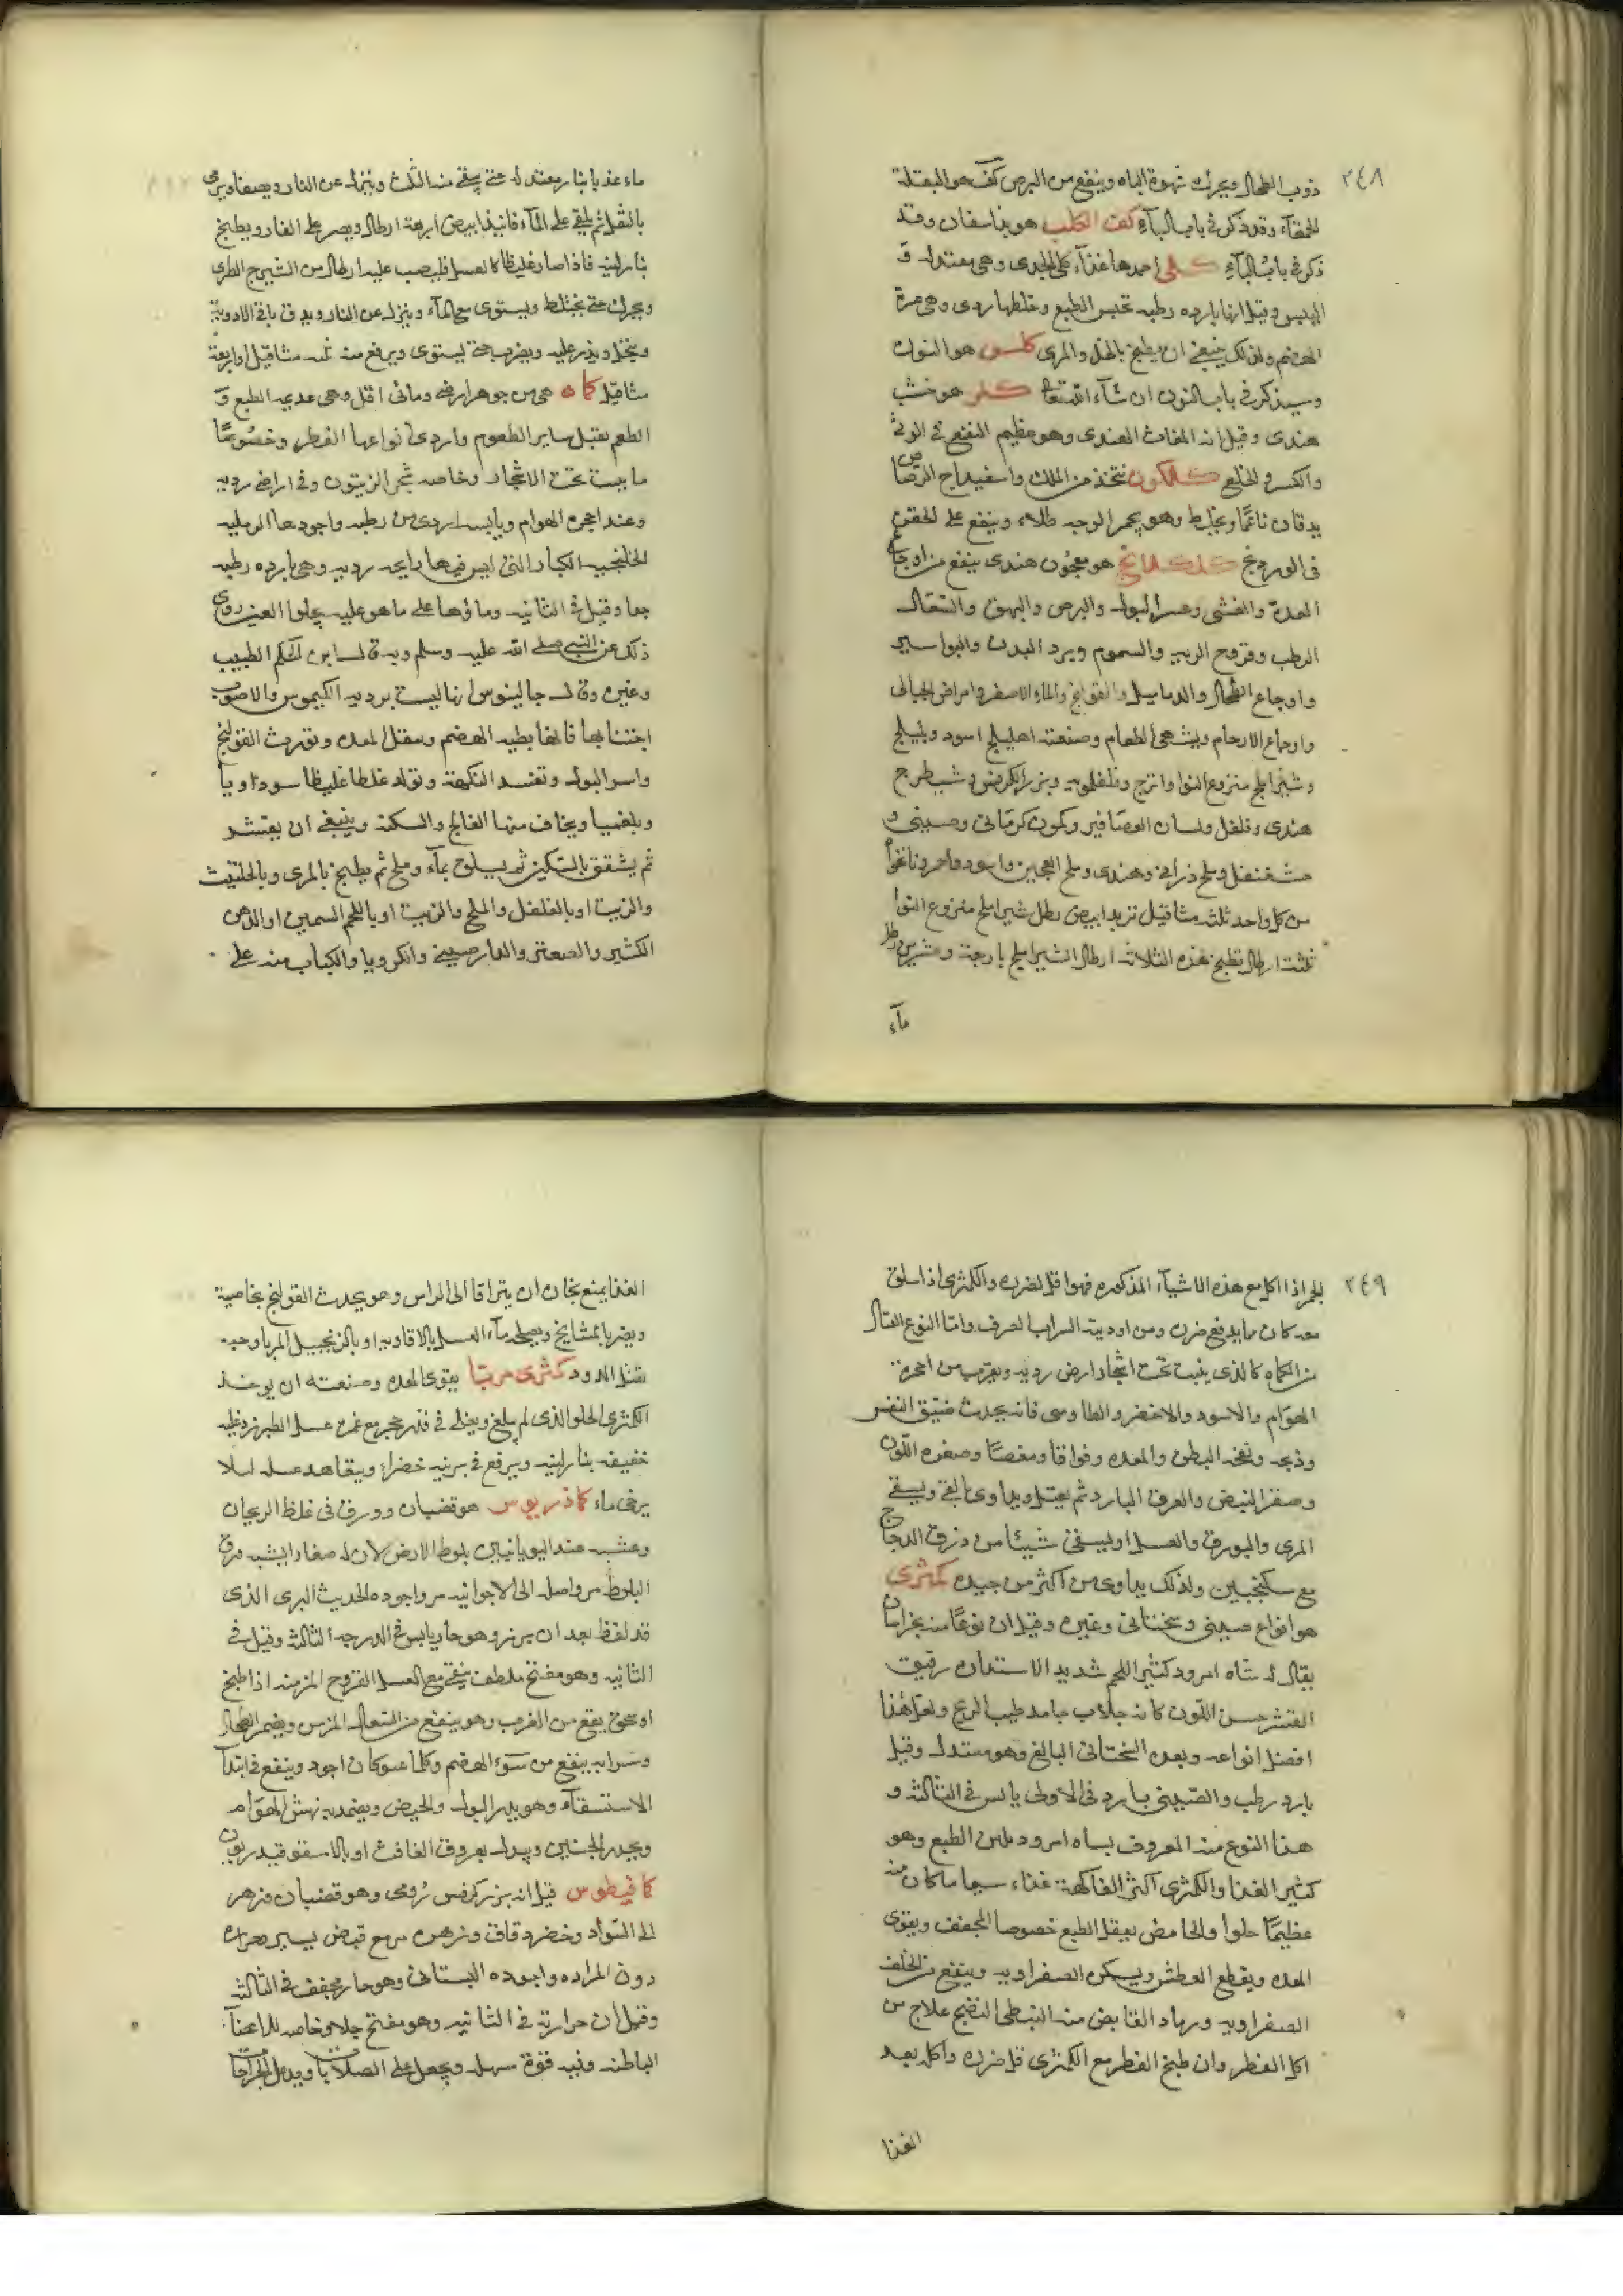 ٢٤٨
ذوب الطحال ويحرك شهوة الباه وينفع من البرص كف هو البقلة
الحمقآء وقد ذكر في باب البآء كف الكلب هو بداسفان وقد
ذكر في باب البآء كلى احمدها غذآء كلى الجدى وهي معتدلة في
اليبس وقيل انها بارده رطبه تحبس الطبع وخلطها ردى وهي عسرة
الهضم ولذلك ينبغي ان يطبخ بالخل والمرى كلس هو النوره
وسيذكر في باب النون ان شآء الله تعالى هو خشب
هندى وقيل انه المغاث الهندى وهو عظيم النفع في الوثى
والكسر والخلع كلكون يتخذ من اللك واسفيداج الرصاص
يدقان ناعمًا ويخلط وهو يحمر الوجه طلاء وينفع على
في كلكلانج هو معجون هندى ينفع من اوجاع
المعدة والغشى وعسر البول والبرص والبهق والسعال
الرطب وقروح الريه والسموم وبرد البدن والبواسير
واوجاع الطحال والدماميل والقولنج والمآء الاصفر وامراض الحبالى
واوجاع الارحام ويشهى الطعام وصنعته اهليلج اسود وبليلج
وشيراملج منزوع النوا وفلفلمويه وبزر الكرفس وشيطرج
هندى وفلفل ولسان العصافير وكمون كرمانى وصينى و
وملح ذرانى وهندى وملح العجين واسود واحمر ونانخواه
من كل واحد ثلثه مثاقيل تربد ابيض رطل شيراملج منزوع النوا
ثلثت ارطال يطبخ هذه الثلاثة ارطال الشيراملج باربعة وعشرين رطل
مآء
ماء عذبا بنار معتدله حتى يبقى منه الثلث وينزل عن النار ويصفا ويرمى
بالثقل ثم يلقى على المآء فانيذا ابيض اربعة ارطال ويصير على النار ويطبخ
بنار لينه فاذا صار غليظا كالعسل فليصب عليه ارطال من الشيرج الطرى
ويحرك حتى يختلط ويستوى مع المآء وينزل عن النار ويدق باقى الادوية
وينخل ويذر عليه ويضرب حتى يستوى ويرفع منه ثلثه مثاقيل او اربعة
مثاقيل كماه هي من جوهر ارضى ومائى اقل وهي عديمه الطبع و
الطعم يقبل ساير الطعوم واردى انواعها الفطر وخصوصًا
ما ينبت تحت الاشجار وخاصه شجر الزيتون وفي اراضى رديه
وعند اجحرة الهوام ويابسه اردى من رطبه واجودها الرمليه
الكبار التى ليس فيها رايحه رديه وهي بارده رطبه
جدا وقيل في الثانيه وماؤها على ما هو عليه يجلوا العين روى
ذلك عن النبي صلى الله عليه وسلم وبه قال الطبيب
وغيره وقال جالينوس انها ليست برديه الكيموس والاصوب
اجتنابها فانها بطيه الهضم ومثقل المعده وتورث القولنج
واسر البول وتفسد النكهة وتولد خلطا غليظا سوداويا
وبلغميا ويخاف منها الفالج والسكتة وينبغى ان يقشر
ثم يشقق بالسكين ثم يسلق بمآء وملح ثم يطبخ بالمرى وبالحلتيت
والزيت او بالفلفل والملح والزيت او باللحم السمين او الدهن
الكثير والصعتر والدارصينى والكرويا والكباب منه على
٢٤٩
الجمر اذا اكل مع هذه الاشيآء المذكوره فهو اقل لضرره والكمثرى اذا سلق
معه كان مما يدفع ضرره ومن اوديته الشراب الصرف واما النوع القتال
من الكماه كالذى ينبت تحت اشجار ارض رديه وبقرب من اجحرة
الهوام والاسود والاخضر والطاوسى فانه يحدث ضيق النفس
وذبحه ونفخه البطن والمعده وفواقا ومغصًا وصفره اللون
وصغر النبض والعرق البارد ثم يقتل ويداوى بالقى ويسقى
المرى والبورق والعسل او يسقى شيئًا من ذرق الدجاج
مع سكنجبين ولذلك يداوى من اكثر من جيده كمثرى
هو انواع صينى وسختانى وغيره وقيل ان نوعًا منه بخراسان
يقال له شاه امرود كثير اللحم شديد الاستداره رقيق
القشر حسن اللون كانه جلاب جامد طيب الريح ولعل هذا
افضل انواعه وبعده السختانى البالغ وهو معتدل وقيل
بارد رطب والصينى بارد في الاولى يابس في الثالثه و
هذا النوع منه المعروف بشاه امرود ملين الطبع وهو
كثير الغذا والكمثرى اكثر الفاكهة غذاء سيما ما كان منه
عظيمًا حلوا والحامض يعقل الطبع خصوصا المجفف ويقوى
المعده ويقطع العطش ويسكن الصفراويه وينفع من الخلفه
الصفراويه ورماد القابض منه البطى النضج علاج من
اكل الفطر وان طبخ الفطر مع الكمثرى قل ضرره واكله بعد
الغذا
الغذا يمنع بخاره ان يتراقا الى الراس وهو يحدث القولنج بخاصية
ويضر بالمشايخ ويصلحه مآء العسل بالافاويه او بالزنجبيل المربا وحبه
يقتل الدود كمثرى مربّا يقوى المعده وصنعته ان يوخذ
الكمثرى الحلو الذى لم يبلغ ويغلى في قدر حجر مع غمره عسل الطبرزد غليه
خفيفه بنار لينه ويرفع في برنيه خضراء ويتعاهد عسله ليلا
يرخى ماء كماذريوس هو قضبان وورق في غلظ الريحان
وعشبه عند اليونانيين بلوط الارض لان له صغار ايشبه ورق
البلوط مر واصله الى الارجوانيه مر واجوده الحديث البرى الذى
قد لفظ بعد ان يبزر وهو حار يابس في الدرجه الثالثه وقيل في
الثانيه وهو مفتح ملطف ينقى مع العسل القروح المزمنه اذا طبخ
او سحق ينفع من الغرب وهو ينفع من السعال المزمن ويضمر الطحال
وشرابه ينفع من سوء الهضم وكلما عتق كان اجود وينفع في ابتدآ
الاستسقآء وهو يدر البول والحيض ويضمد به نهش الهوام
ويحدر الجنين وبدله بعروق الغافث او بالاسقولوقندريون
كمافيطوس قيل انه بزر كرفس رومى وهو قضبان وزهر
الى السواد وخضر دقاق وزهره مر مع قبض يسير وحراره
دون المراره واجوده البستانى وهو حار مجفف في الثالثه
وقيل ان حرارته في الثانيه وهو مفتح جلا وخاصه للاعضآء
الباطنه وفيه قوة مسهل ويجعل على الصلابات ويدمل الجراحات